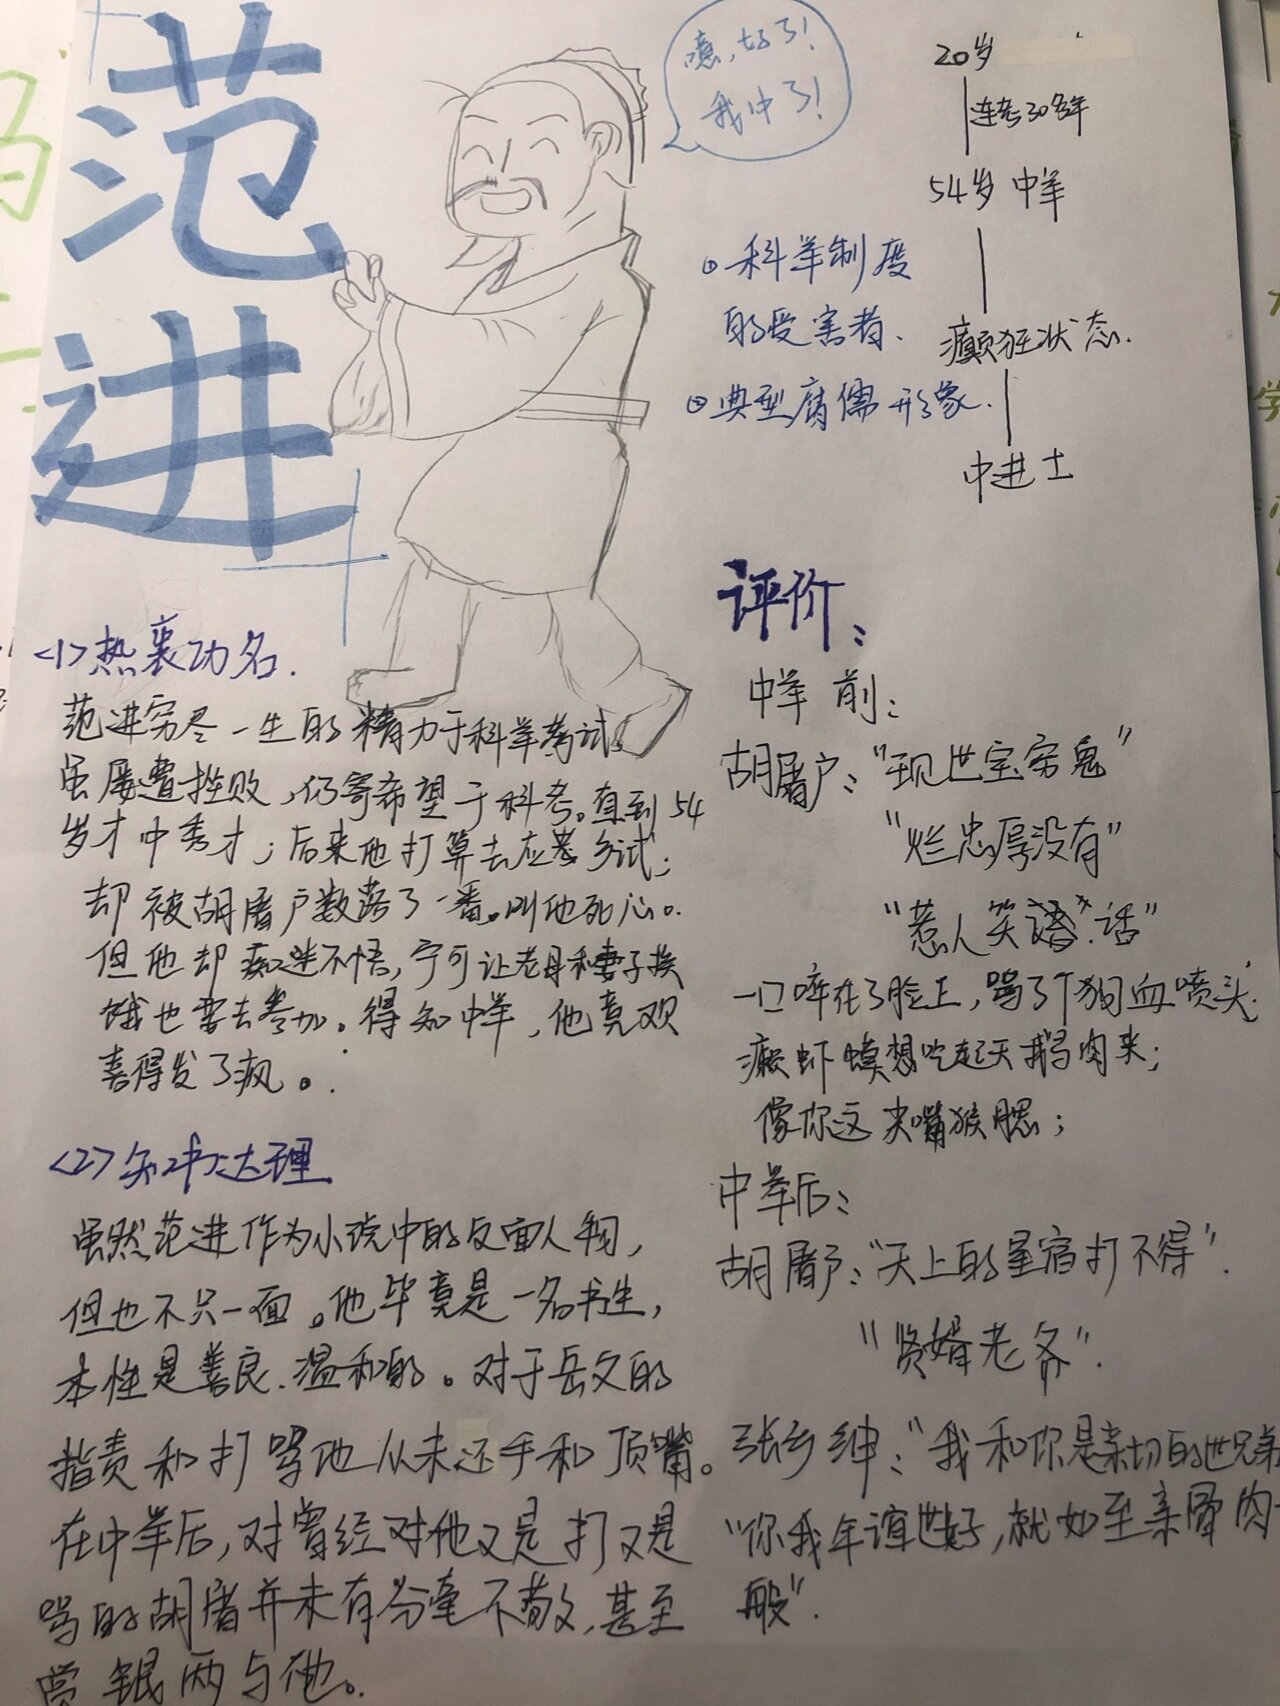 范
进
噫,好了!
我中了!
20岁
连考30多年
54岁 中举
癫狂状态.
中进士
①科举制度
的受害者.
②典型腐儒形象.
<1>热衷功名.
范进穷尽一生的精力于科举考试。
虽屡遭挫败,仍寄希望于科考。直到54
岁才中秀才;后来他打算去应考乡试;
却被胡屠户数落了一番。叫他死心。
但他却痴迷不悟,宁可让老母和妻子挨
饿也要去参加。得知中举,他竟欢
喜得发了疯。
<2>知书达理
虽然范进作为小说中的反面人物,
但也不只一面。他毕竟是一名书生,
本性是善良.温和的。对于岳父的
指责和打骂他从未还手和顶嘴。
在中举后,对曾经对他又是打又是
骂的胡屠并未有分毫不敬,甚至
赏银两与他。
评价:
中举前:
胡屠户:“现世宝穷鬼”
“烂忠厚没有”
“惹人笑话”
一口啐在了脸上,骂了个狗血喷头
癞虾蟆想吃起天鹅肉来;
像你这尖嘴猴腮;
中举后:
胡屠户:“天上的星宿打不得”.
“贤婿老爷”.
张乡绅:“我和你是亲切的世兄弟
“你我年谊世好,就如至亲骨肉
般”.